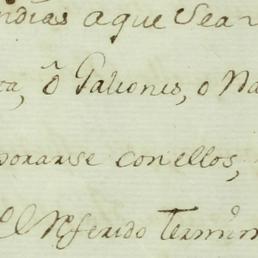 ndias aque Sea
ta, ô Galiones, o Na
porarse con ellos,
el Rêferido Termin